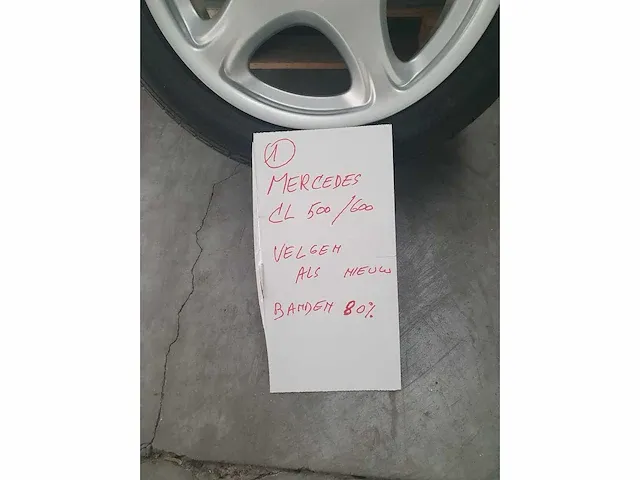 1
MERCEDES
CL 500/600
VELGEN
ALS NIEUW
BANDEN 80%